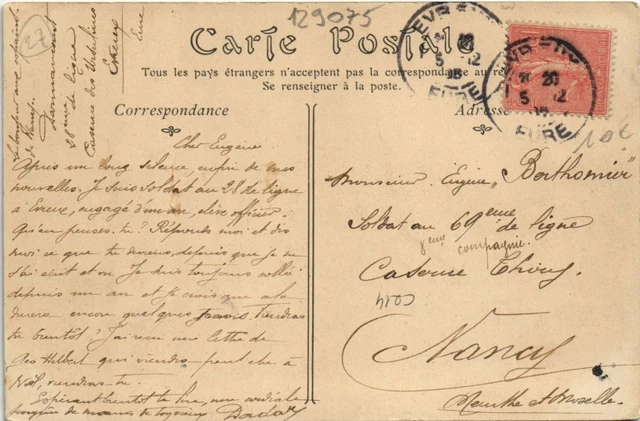 27
129075
Carte Postale
Tous les pays étrangers n'acceptent pas la correspondance au
Se renseigner à la poste.
Correspondance
Adresse
Le bonjour aux copains
de Nancy.
28ème de ligne
Caserne des Ursulines
Evreux
Eure
Cher Eugène
Après un long silence, enfin de mes
nouvelles. Je suis soldat au 28 de ligne
à Evreux, engagé d'un an, élève officier.
Qu'en penses-tu? Réponds moi et dis
moi ce que tu deviens, depuis que je ne
t'ai écrit et on Je suis toujours collé
depuis un an et je crois que cela
durera encore quelques
bientôt? J'ai reçu une lettre de
Geo Hilbert qui viendra peut être à
Noël, viendras-tu.
Espérant bientôt te lire, une cordiale
poignée de mains
Monsieur Eugène "Berthomier"
Soldat au 69ème de ligne
8ème compagnie.
Caserne Thiry
Nancy
Meurthe et Moselle.
EVREUX
20
5 12
EURE
EVREUX
20
5 12
EURE
10€